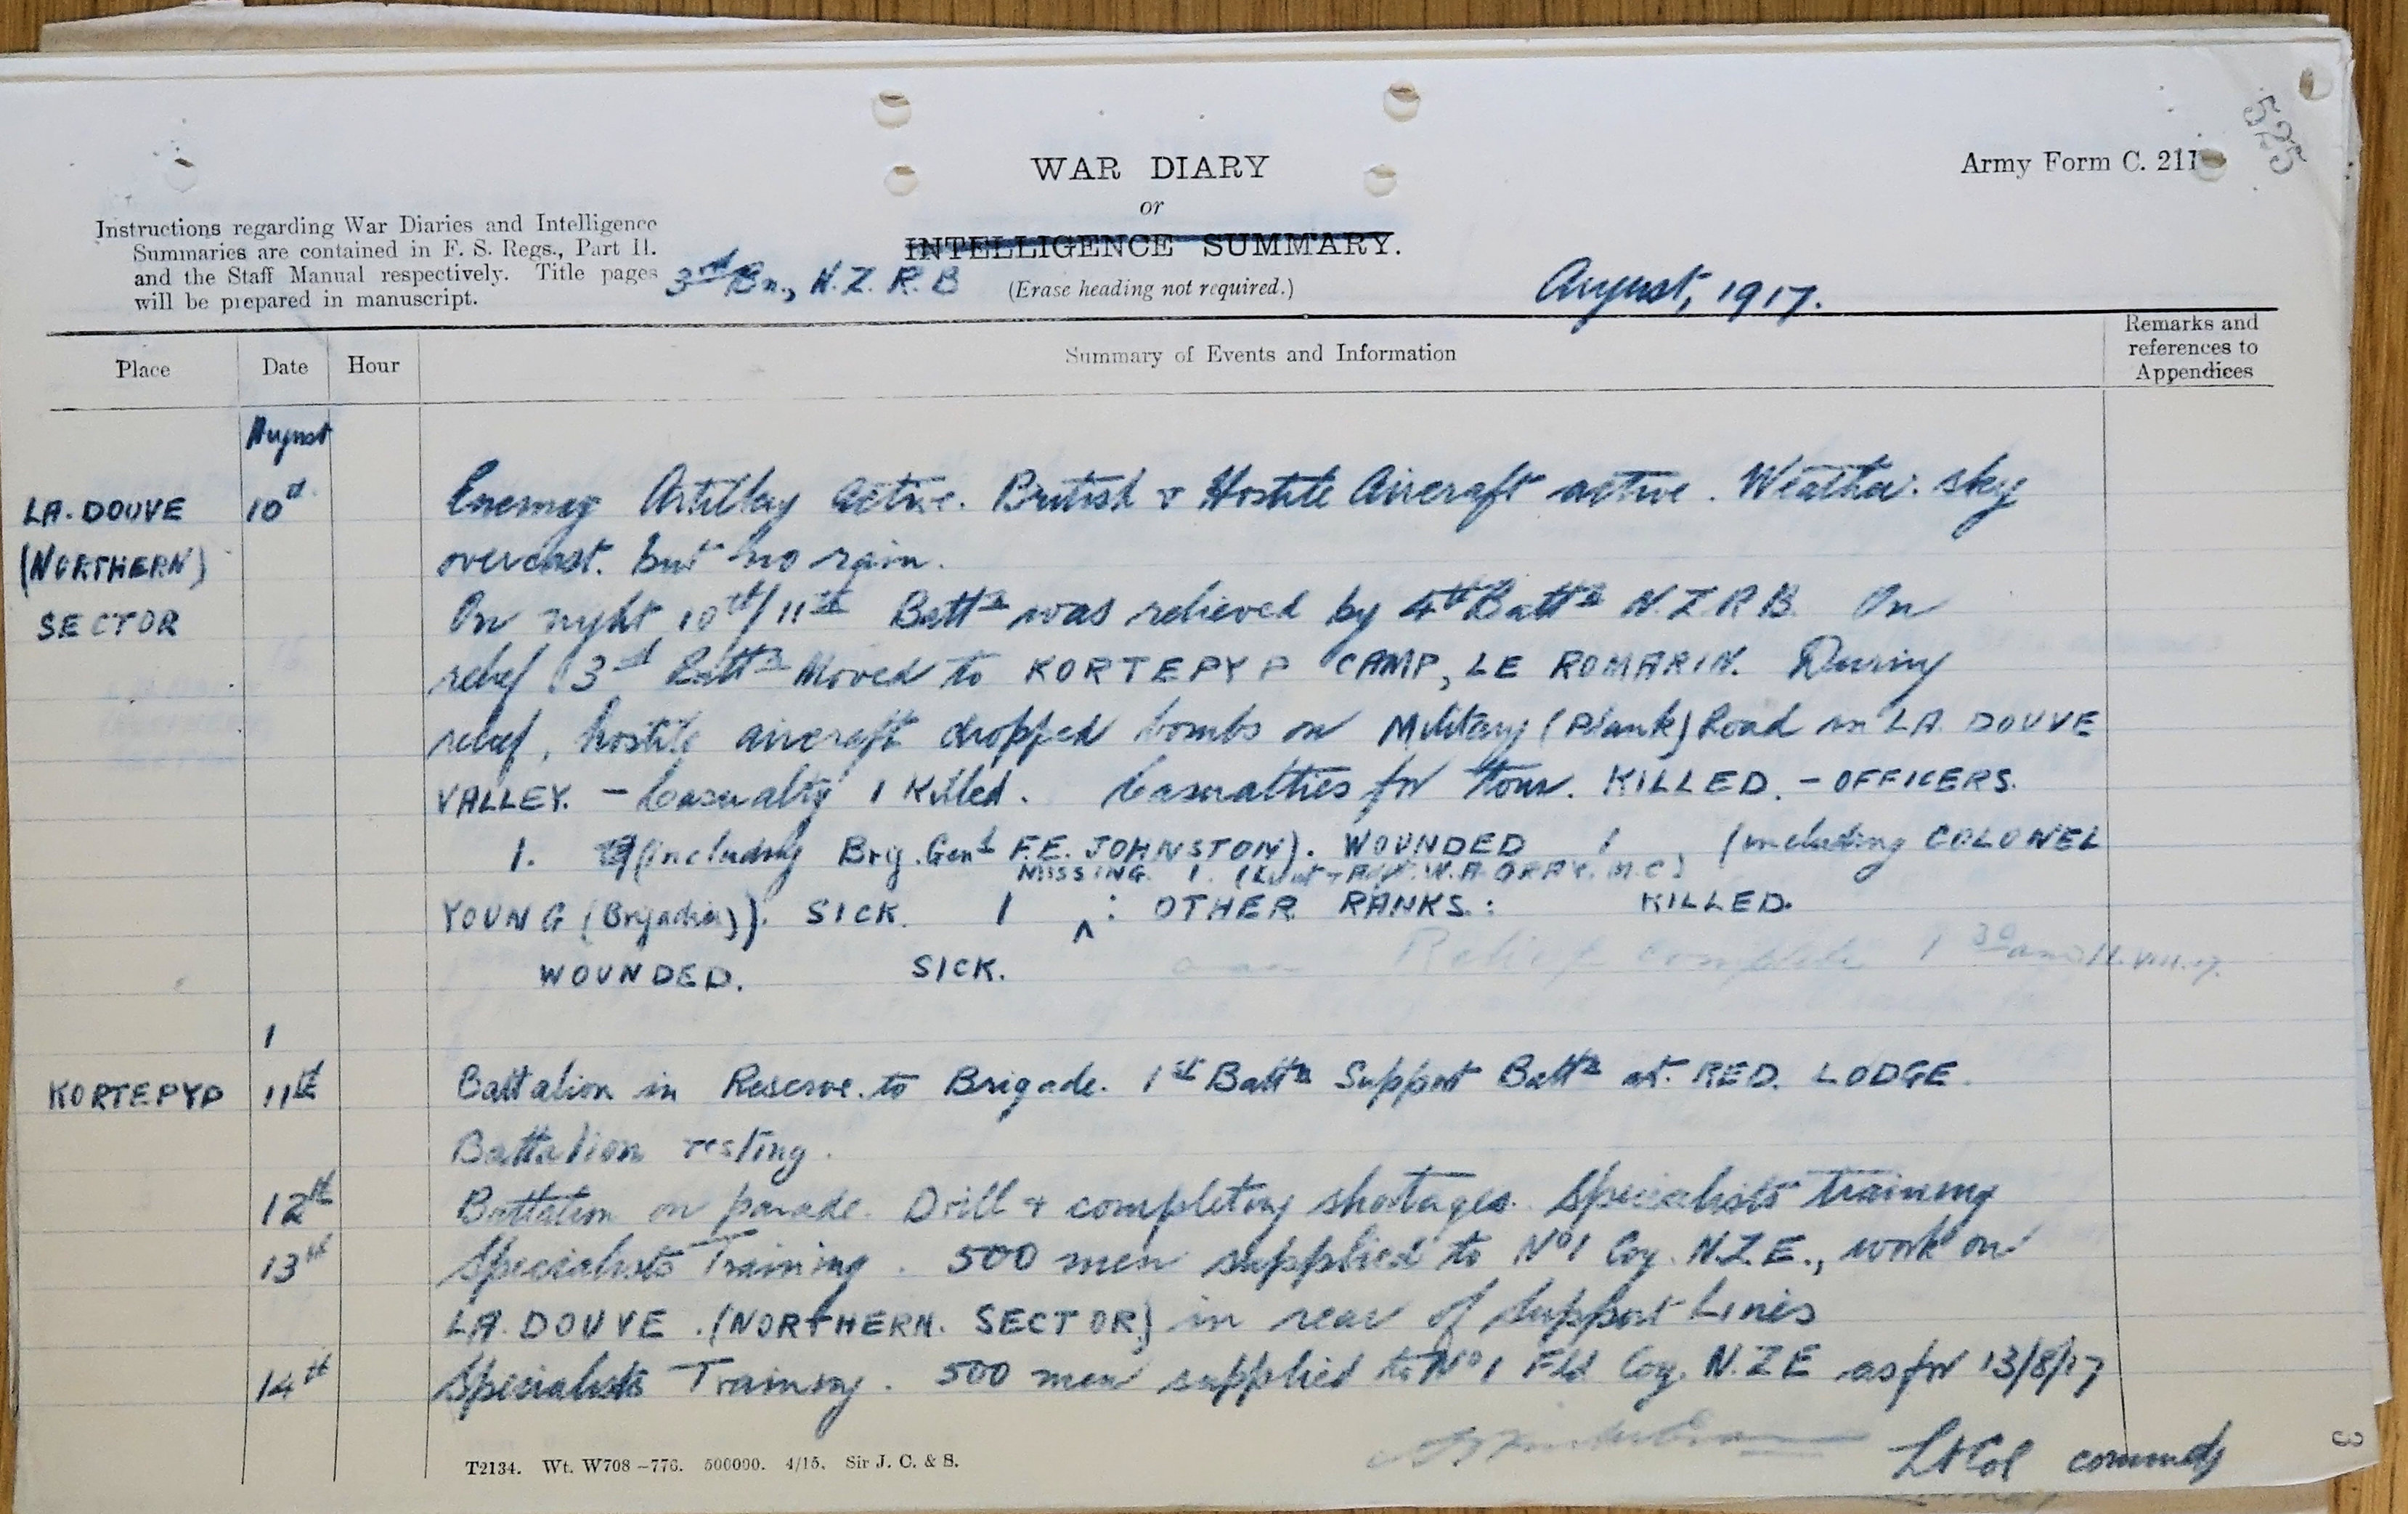 525
Army Form C. 211
WAR DIARY
or
INTELLIGENCE SUMMARY.
(Erase heading not required.)
Instructions regarding War Diaries and Intelligence
Summaries are contained in F. S. Regs., Part II.
and the Staff Manual respectively. Title pages
will be prepared in manuscript.
3rd Bn., N.Z.R.B
August, 1917.
Place Date Hour Summary of Events and Information Remarks and references to Appendices
August
LA. DOUVE 10th Enemy Artillery active. British & Hostile Aircraft active. Weather. sky
(NORTHERN) overcast. but no rain.
SECTOR On night 10th/11th Battn was relieved by 4th Battn N.Z.R.B. On
relief 3rd Battn Moved to KORTEPYP CAMP, LE ROMARIN. During
relief, hostile aircraft dropped bombs on Military (Plank) Road in LA. DOUVE
VALLEY. - Casualty 1 Killed. Casualties for Tour. KILLED. - OFFICERS.
1. (including Brig. Genl F.E. JOHNSTON). WOUNDED 1 (including COLONEL
MISSING 1. (Lieut & Adjt. W.A. GRAY. M.C)
YOUNG (Brigadier)). SICK. 1 ^ : OTHER RANKS: KILLED.
WOUNDED. SICK. Relief complete 1 30 am 11.VIII.17.
1
KORTEPYP 11th Battalion in Reserve. to Brigade. 1st Battn Support Battn at. RED. LODGE.
Battalion resting.
12th Battalion on parade. Drill & completing shortages. Specialists training
13th Specialists Training. 500 men supplied to No 1 Coy. N.Z.E., work on
LA. DOUVE. (NORTHERN. SECTOR) in rear of Support Lines
14th Specialists Training. 500 men supplied to No 1 Fld Coy. N.Z.E as for 13/8/17
Lt Col commdg
T2134. Wt. W708-776. 500000. 4/15. Sir J. C. & S.
3